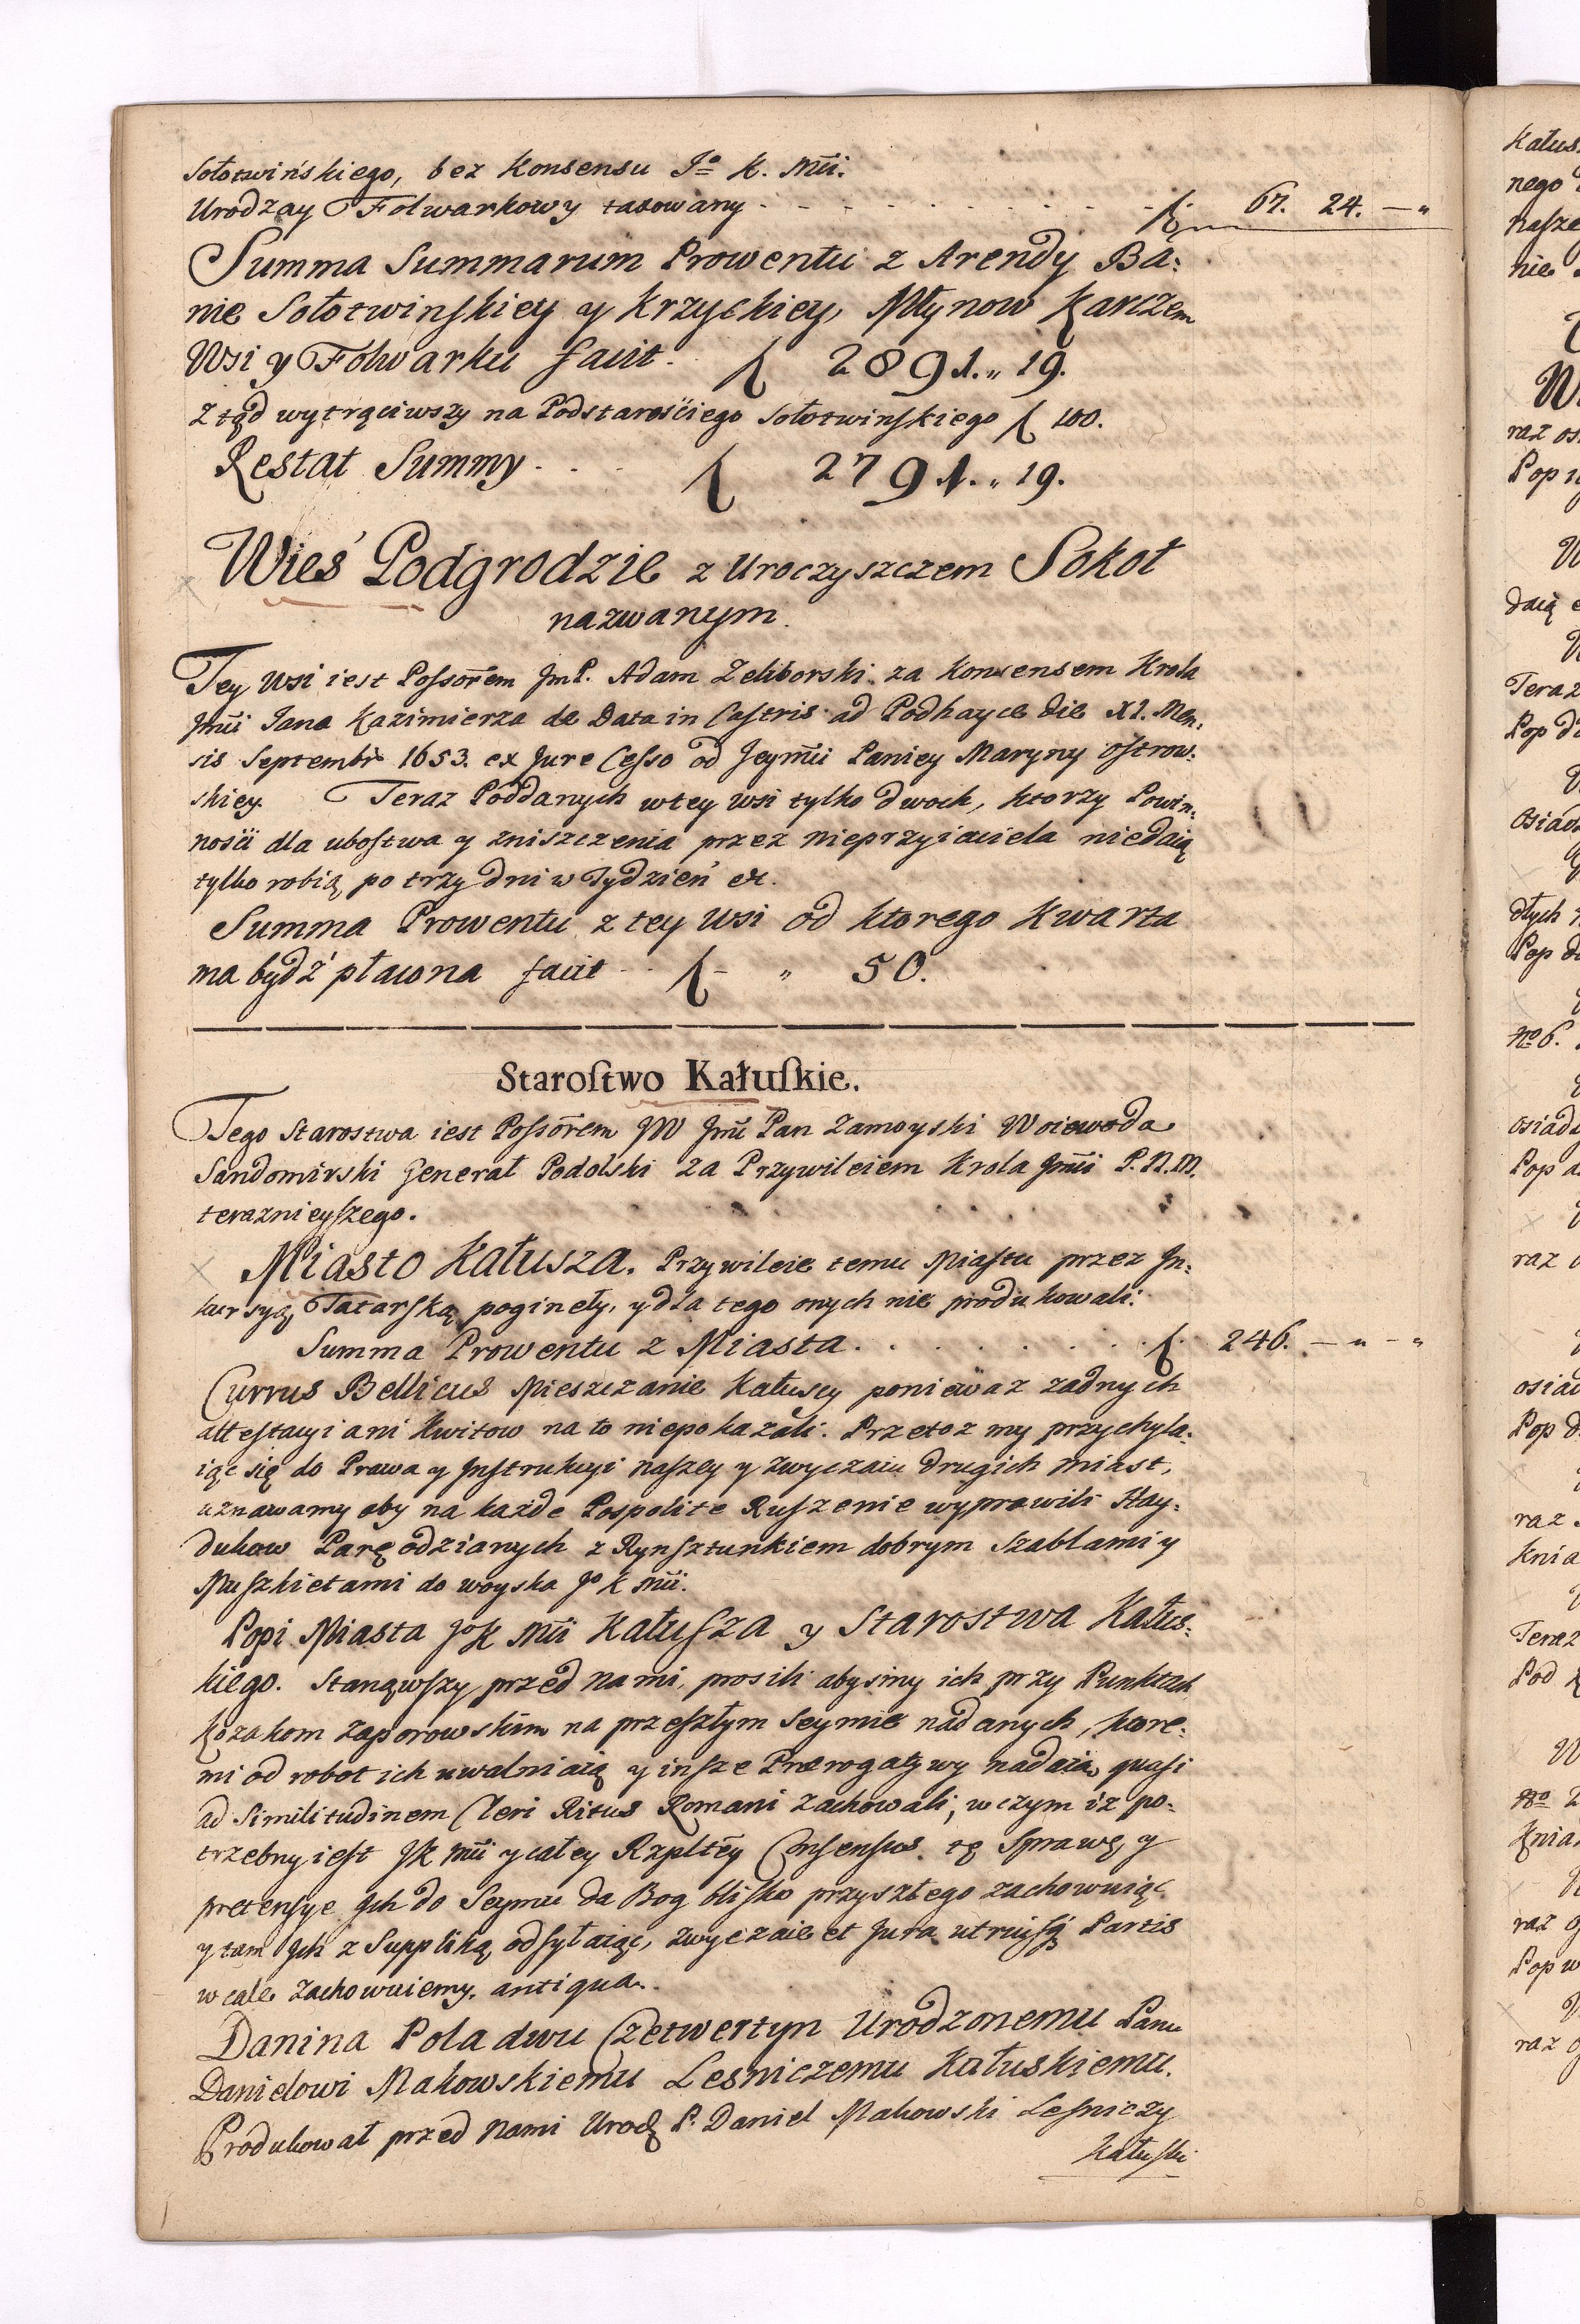 Sołotwińskiego, bez Konsensu Jo K. Mci.
Urodzay Folwarkowy taxowany - - - - - - - - - f. 67. 24. — „
Summa Summarum Prowentu z Arendy Ba:
nie Sołotwinskiey y Krzyckiey, Młynow Karczem
Wsi y Folwarku facit. f 2891. „ 19.
Ztąd wytrąciwszy na Podstarościego Sołotwinskiego f 100.
Restat Summy . . . f 2791. „ 19.
Wieś Podgrodzie z Uroczyszczem Sokoł
nazwanym.
Tey Wsi iest Possorem JmP. Adam Zeliborski za Konsensem Krola
Jmci Jana Kazimierza de Data in Castris ad Podhayce die XI. Men:
sis Septembris 1653. ex Jure Cesso od Jeymci Paniey Maryny Ostrow:
skiey. Teraz Poddanych w tey Wsi tylko dwoch, ktorzy Powin:
ności dla ubostwa y zniszczenia przez nieprzyiaciela niedaią
tylko robią po trzy dni w Tydzień etc.
Summa Prowentu z tey Wsi od ktorego Kwarta
ma bydź płacona facit - - f - „ 50.
Starostwo Kałuskie.
Tego Starostwa iest Possorem JW Jmć Pan Zamoyski Woiewoda
Sandomirski Generał Podolski za Przywileiem Krola Jmci P. N. M.
teraznieyszego.
Miasto Kałusza. Przywileie temu Miastu przez In:
kursyą Tatarską poginęły, y dla tego onych nie produkowali.
Summa Prowentu z Miasta . . . . . . . . f. 246. — „ - „
Currus Bellicus Mieszczanie Kałuscy poniewaz zadnych
attestacyi ani Kwitow na to niepokazali. Przetoz my przychyla:
iąc się do Prawa y Instrukcyi naszey y zwyczaiu drugich miast,
uznawamy aby na każde Pospolite Ruszenie wyprawili Hay:
dukow Parę odzianych z Rynsztunkiem dobrym Szablami y
Muszkietami do woyska Jo K Mci.
Popi Miasta JoK Mci Kałusza y Starostwa Kałus:
kiego. Stanąwszy przed nami, prosili abysmy ich przy Punktach
Kozakom Zaporowskim na przeszłym Seymie nadanych, ktore:
mi od robot ich uwalniaią y insze Prerogatywy nadaią, quasi
ad Similitudinem Cleri Ritus Romani zachowali, w czym iz po:
trzebny iest JK Mci y całey Rzpltey Consensus, tę Sprawę y
pretensye Ich do Seymu da Bog blisko przyszłego zachowuiąc
y tam Ich z Suppliką odsyłaiąc, zwyczaie et Jura utriusq Partis
w cale zachowuiemy, antiqua.
Danina Pola dwu Czetwertyn Urodzonemu Panu
Danielowi Makowskiemu Lesniczemu Kałuskiemu.
Produkował przed Nami Urodz P. Daniel Makowski Lesniczy
Kałuski